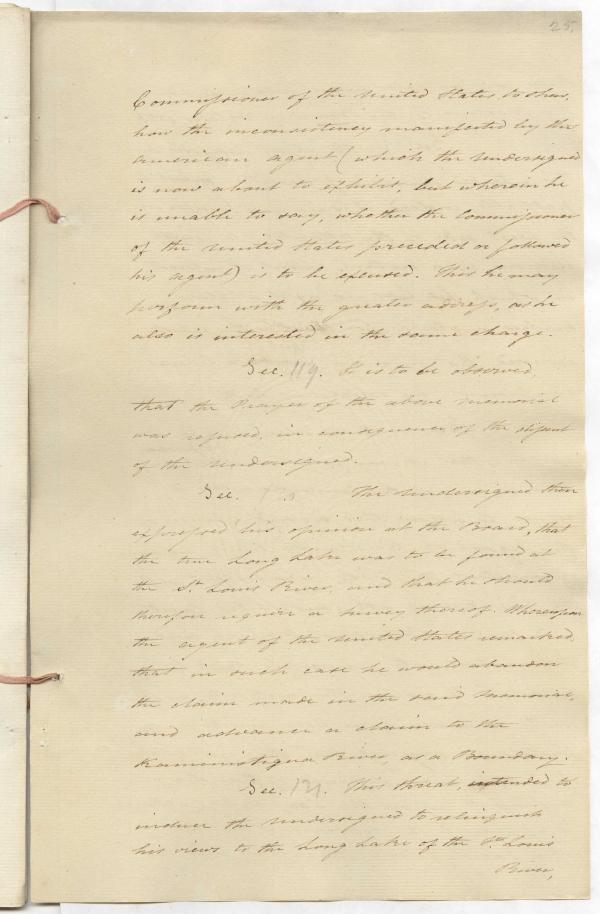 25.
Commissioner of the United States to shew,
how the inconsistency manifested by the
American agent (which the Undersigned
is now about to exhibit, but wherein he
is unable to say, whether the Commissioner
of the United States preceded or followed
his agent) is to be excused. This he may
perform with the greater address, as he
also is interested in the same charge.
Sec. 119. It is to be observed,
that the Prayer of the above memorial
was refused, in consequence of the dissent
of the Undersigned.
Sec. The Undersigned then
expressed his opinion at the Board, that
the true Long Lake was to be found at
the St. Louis River, and that he should
therefore require a survey thereof. Whereupon
the agent of the United States remarked
that in such case he would abandon
the claim made in the said memorial,
and advance a claim to the
Kaministiqua River, as a Boundary.
Sec. 121. This threat, intended to
induce the Undersigned to relinquish
his views to the Long Lake of the St. Louis
River,